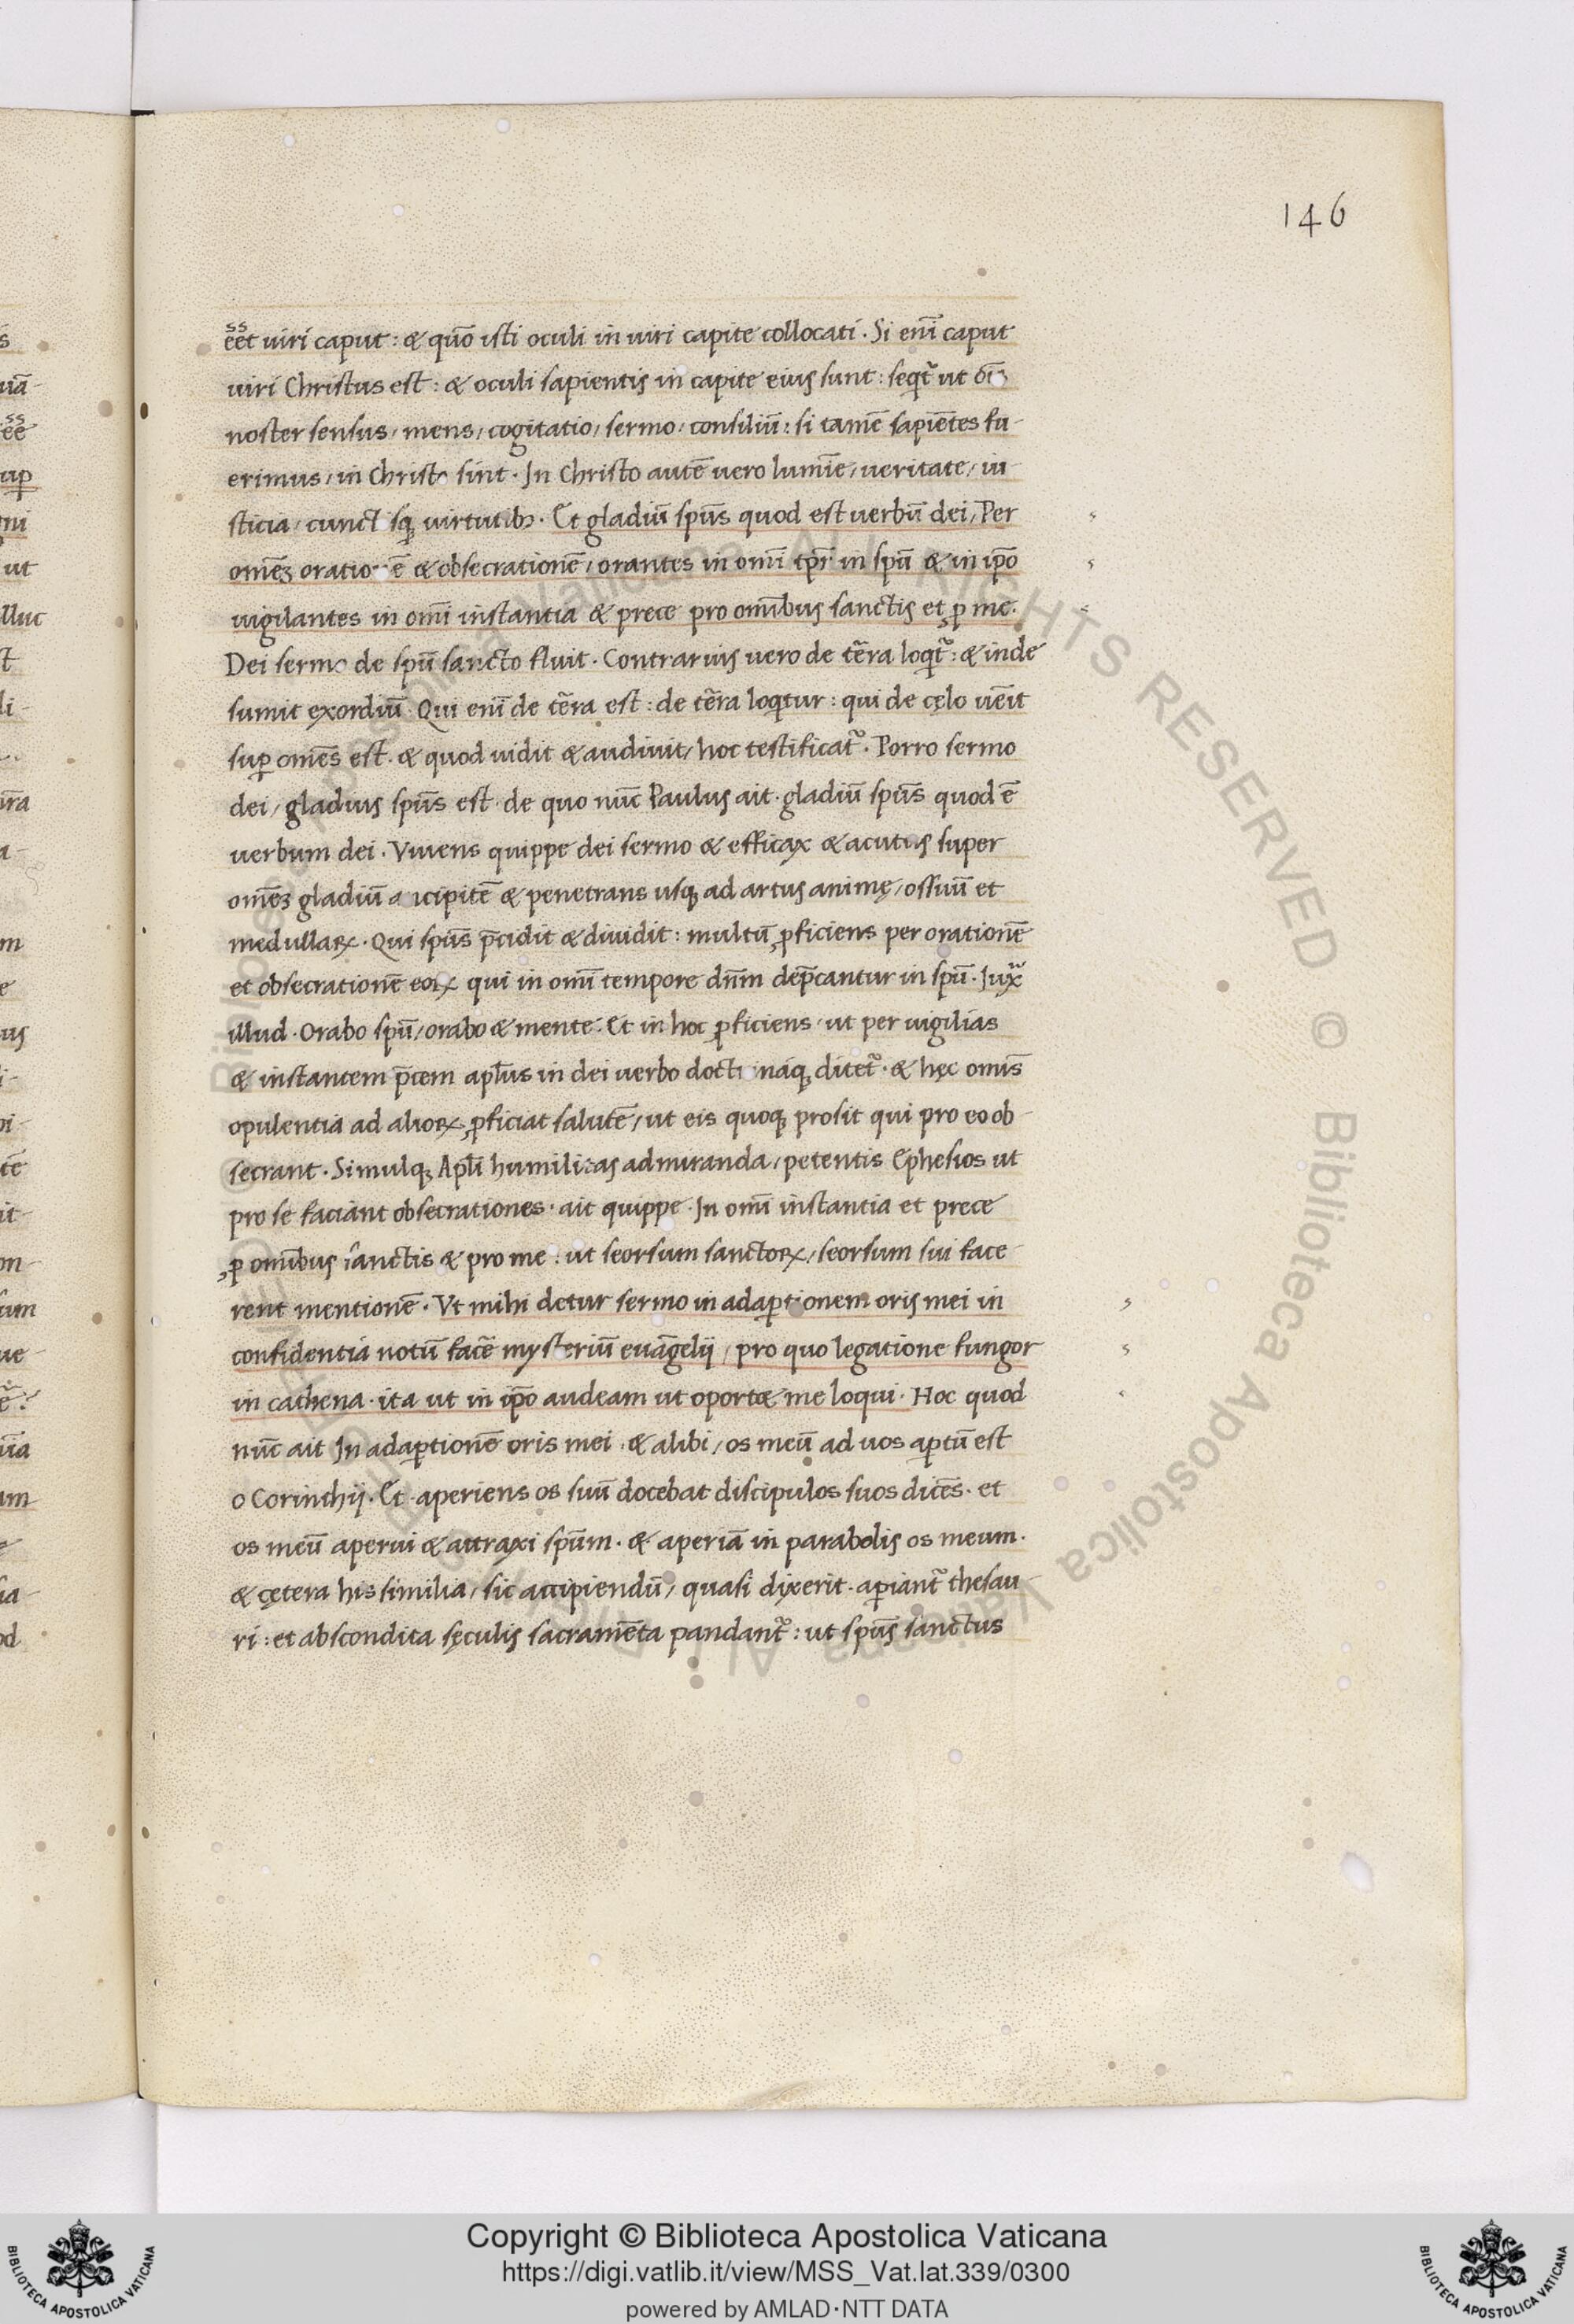 146
eēt uiri caput: & quō isti oculi in uiri capite collocati. Si enī caput
uiri Christus est: & oculi sapientis in capite eius sunt: seqt̄ ut
noster sensus, mens, cogitatio, sermo, consiliū: si tamē sapiētes fu-
erimus, in Christo sint. In Christo autē uero lumīe, ueritate, iu-
sticia, cunctisq; uirtutib;. Et gladiū spūs quod est uerbū dei, Per
omēꝫ orationē & obsecrationē, orantes in omī tpr̄ in spū & in ip̄o
uigilantes in omī instantia & prece pro omībus sanctis et ꝓ me.
Dei sermo de spū sancto fluit. Contrarius uero de tēra loqt̄: & inde
sumit exordiū. Qui enī de tēra est: de tēra loqtur: qui de cęlo uēit
suꝑ omēs est. & quod uidit & audiuit, hoc testificat᷑. Porro sermo
dei, gladius spūs est. de quo nūc Paulus ait. gladiū spūs quod ē
uerbum dei. Viuens quippe dei sermo & efficax & acutus super
omēꝫ gladiū ancipitē & penetrans usq; ad artus animę, ossiuū et
medullaꝝ. Qui spūs p̄cidit & diuidit: multū ꝓficiens per orationē
et obsecrationē eoꝝ qui in omī tempore dn̄m dep̄cantur in spū. Iux̄
illud. Orabo spū, orabo & mente. Et in hoc ꝓficiens, ut per uigilias
& instantem p̄cem apl̄us in dei uerbo doctrinaq; ditet᷑. & hęc omīs
opulentia ad alioꝝ ꝓficiat salutē, ut eis quoq; prosit qui pro eo ob-
secrant. Simulq; Apl̄i humilitas admiranda, petentis Ephesios ut
pro se faciant obsecrationes. ait quippe. In omī instantia et prece
ꝓ omībus sanctis & pro me: ut seorsum sanctoꝝ, seorsum sui face-
rent mentionē. Vt mihi detur sermo in adaꝑtionem oris mei in
confidentia notū facē mysteriū euāgelij, pro quo legatione fungor
in cathena. ita ut in ip̄o audeam ut oport& me loqui. Hoc quod
nūc ait In adaꝑtionē oris mei. & alibi, os meū ad uos aꝑtū est
o Corinthij. Et. aperiens os suū docebat discipulos suos dicēs. et
os meū aperui & attraxi spūm. & aperiā in parabolis os meum.
& cętera his similia, sic accipiendū, quasi dixerit. aꝑiant᷑ thesau-
ri: et abscondita sęculis sacramēta pandant᷑: ut spūs sanctus
Copyright © Biblioteca Apostolica Vaticana
https://digi.vatlib.it/view/MSS_Vat.lat.339/0300
powered by AMLAD·NTT DATA